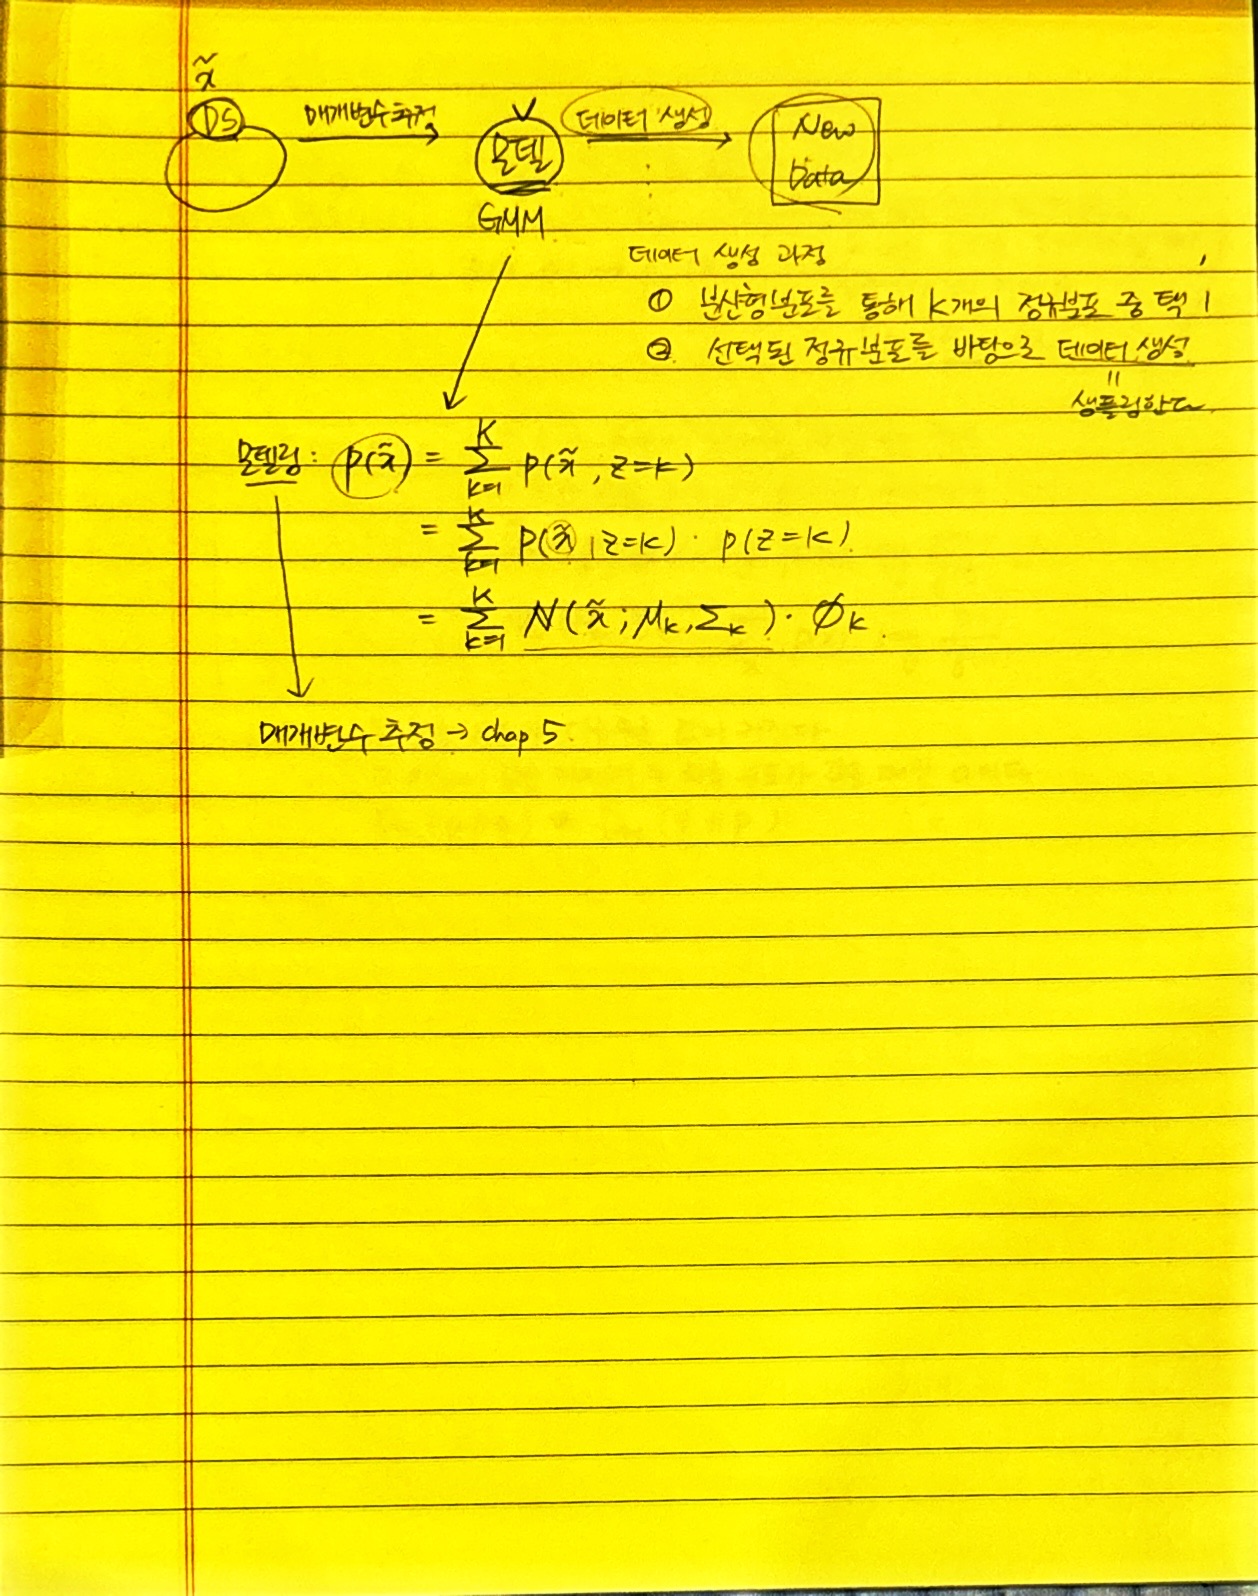 x̃
DS 매개변수 추정 모델 데이터 생성 New Data
GMM
데이터 생성 과정
① 분산형분포를 통해 K개의 정규분포 중 택 1
② 선택된 정규분포를 바탕으로 데이터 생성
=
샘플링한다.
모델링: p(x̃) = Σ_{k=1}^{K} p(x̃, z=k)
= Σ_{k=1}^{K} p(x̃ | z=k) · p(z=k).
= Σ_{k=1}^{K} N(x̃; μ_k, Σ_k) · ∅_k.
매개변수 추정 → chap 5.